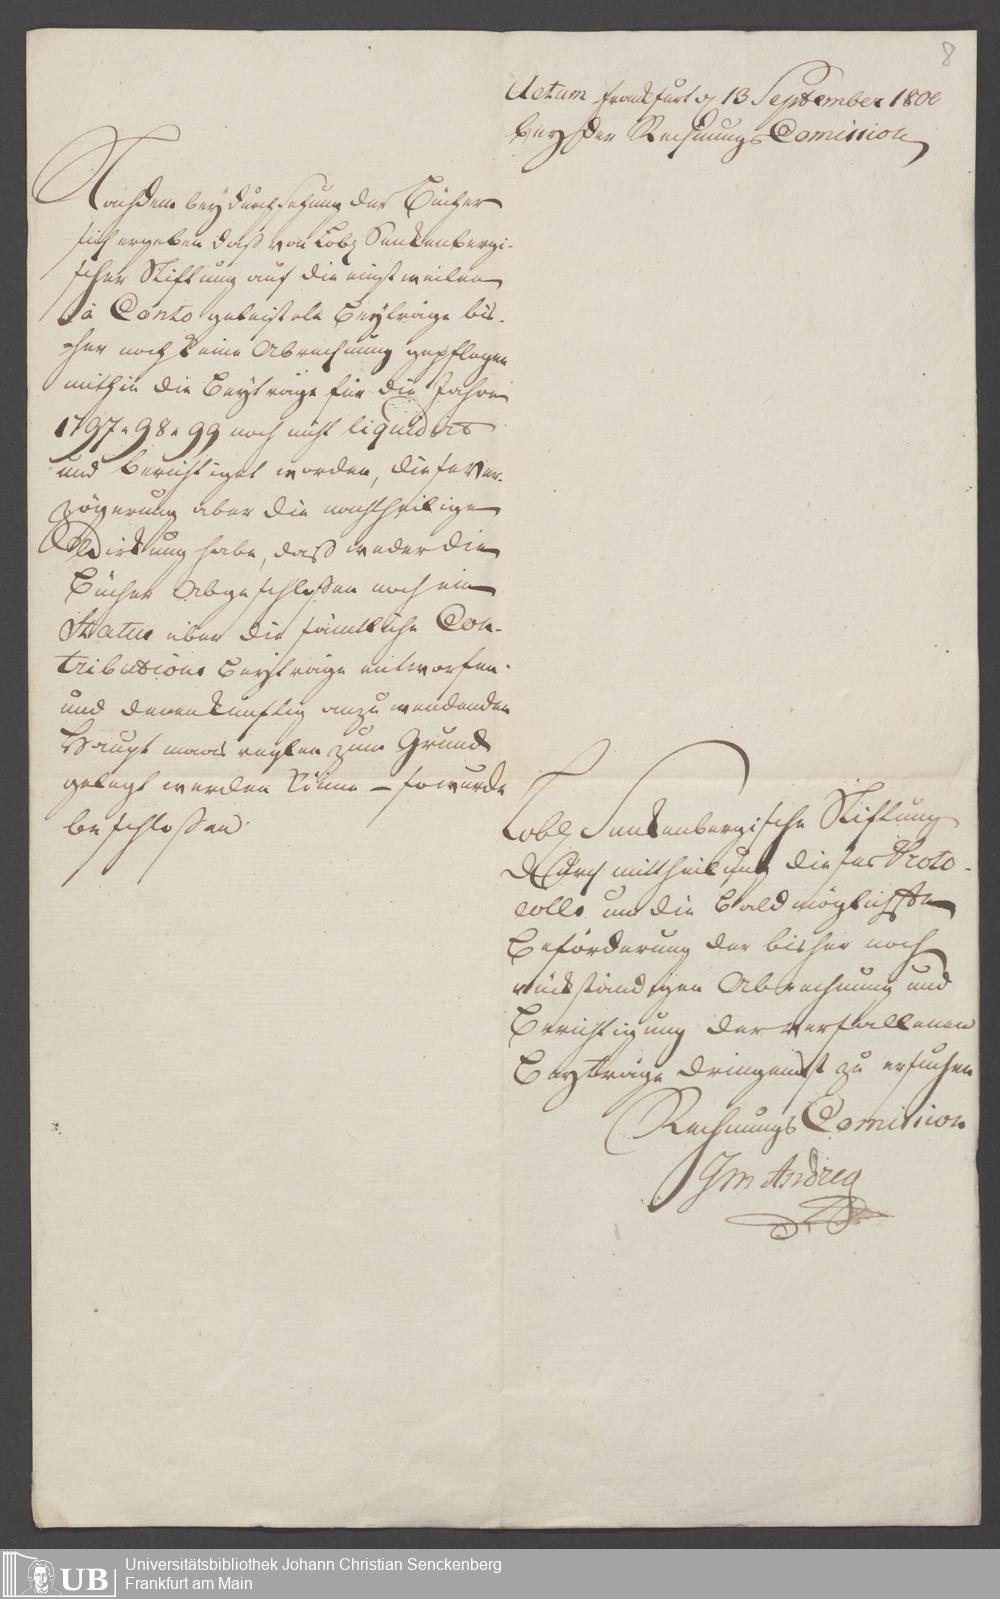 8
Actum Frankfurt d 13 September 1800
bey der Rechnungs Comission
Nachdem bey durchsehung der Bücher
sich ergeben daß von Löbl Senkenbergi-
scher Stiftung auf die einstweilen
à Conto geleistete Beyträge bis-
her noch keine Abrechnung gepflogen
mithin die Beyträge für die Jahre
1797. 98. 99 noch nicht liquidirt
und berichtiget worden, diese Ver-
zögerung aber die nachtheilige
Wirkung habe, daß weder die
Bücher Abgeschloßen noch ein
Status über die sämtliche Con-
tributions Beyträge entworfen
und denen künftig anzuwendenden
Haupt maas reglen zum Grund
gelegt werden könne – so wurde
beschloßen
Löbl Senkenbergische Stiftung
durch mittheilung dieses Proto-
colls um die Baldmöglichste
Beförderung der bisher noch
rückständigen Abrechnung und
Berichtigung der verfallenen
Beyträge dringendst zu ersuchen
Rechnungs Comission
Andrea
UB
Universitätsbibliothek Johann Christian Senckenberg
Frankfurt am Main